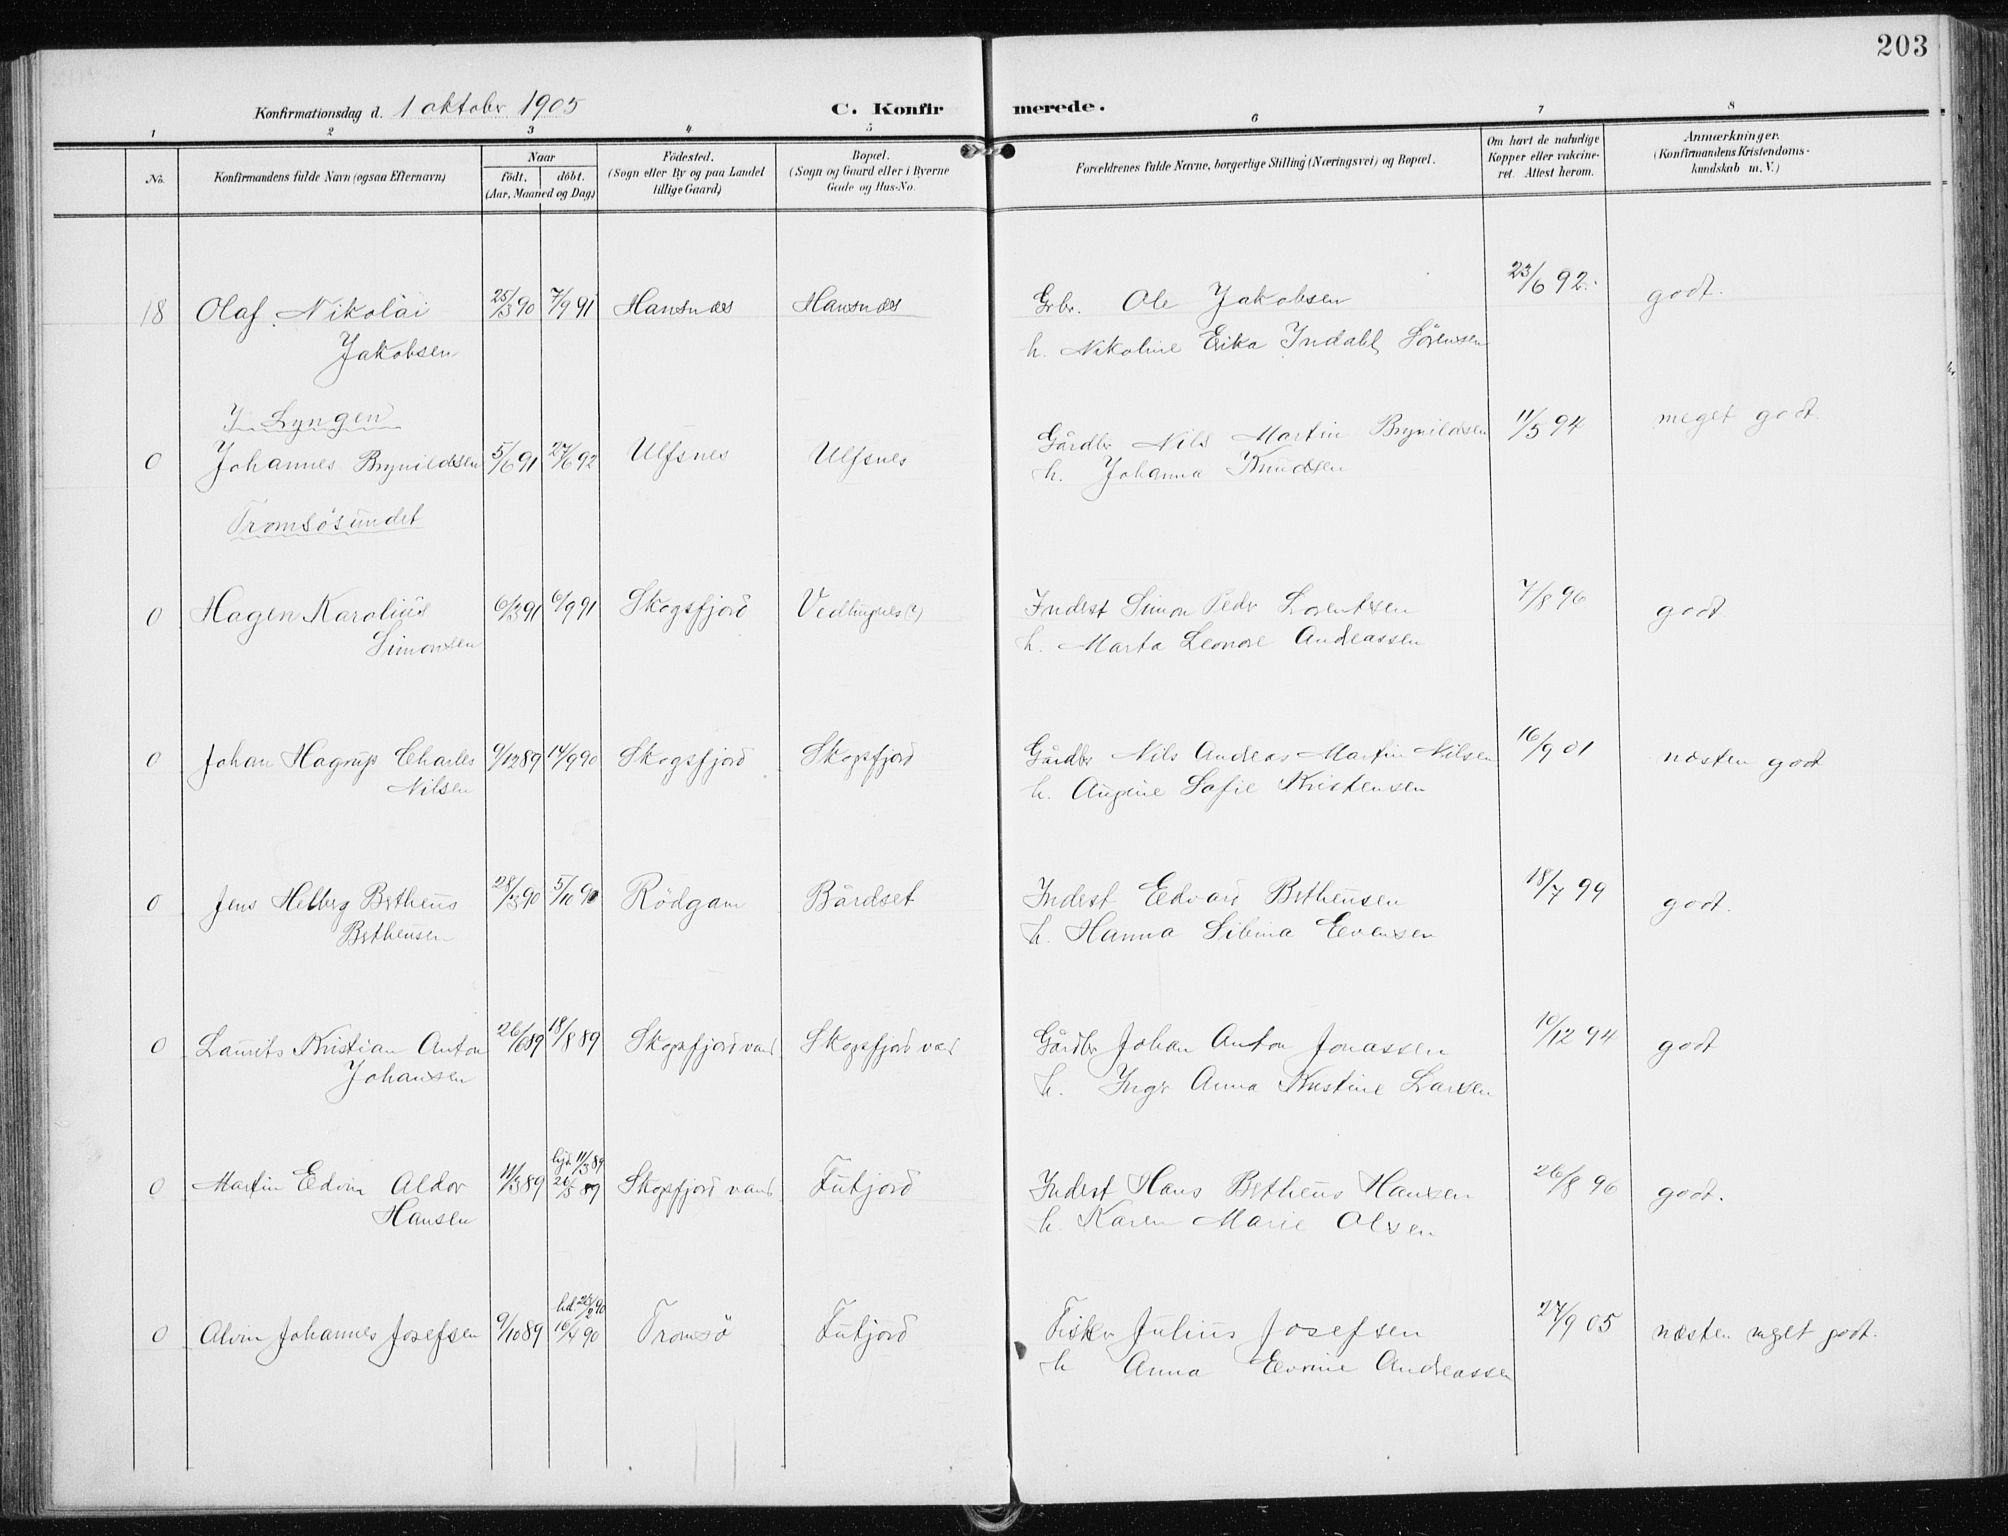 203
Konfirmationsdag d. 1 oktober 1905 C. Konfirmerede.
1 2 3 4 5 6 7 8
No. Konfirmandens fulde Navn (ogsaa Efternavn) Naar født. døbt. (Aar, Maaned og Dag) Fødested. (Sogn eller By og paa Landet tillige Gaard) Bopæl. (Sogn og Gaard eller i Byerne Gade og Hus-No. Forældrenes fulde Navne, borgerlige Stilling (Næringsvei) og Bopæl. Om havt de naturlige Kopper eller vakcineret. Attest herom. Anmærkninger. (Konfirmandens Kristendomskundskab m. V.)
18 Olaf Nikolai 25/3 90 7/9 91 Hansnæs Hansnæs Grbr. Ole Jakobsen 23/6 92. godt.
Jakobsen h. Nikoline Erika Indahl Sørensen
I Lyngen
0 Johannes Brynildsen 5/6 91 27/6 92 Ulfsnes Ulfsnes Gårdbr Nils Martin Brynildsen 11/5 94 meget godt.
h. Johanna Knudsen
Tromsøsundet
0 Hagen Karolius 6/3 91 6/9 91 Skogsfjord Vedtingnes (?) Inderst Simon Peder Lorentsen 7/8 96 godt
Simonsen h. Marta Leonore Andreassen
0 Johan Hagrup Charles 9/12 89 14/9 90 Skogsfjord Skogsfjord Gårdbr Nils Andreas Martin Nilsen 16/9 01 næsten godt
Nilsen h. Augine Sofie Kristensen
0 Jens Helberg Bertheus 28/3 90 5/10 90 Rödgam Bårdset Inderst Edvard Bertheusen 18/7 99 godt.
Bertheusen h. Hanna Sibina Evensen
0 Laurits Kristian Anton 26/6 89 18/8 89 Skogsfjord vand Skogsfjord vad Gårdbr Johan Anton Jonassen 10/12 94 godt
Johansen h. Inger Anna Kristine Larsen
0 Martin Edvin Aldor 11/3 89 hjd. 11/3 89 26/5 89 Skogsfjord vand Futjord Inderst Hans Bertheus Hansen 26/8 96 godt.
Hansen h. Karen Marie Olsen
0 Alvin Johannes Josefsen 9/10 89 hd. 26/2 90 16/4 90 Tromsø Futjord Fisker Julius Josefsen 27/9 05 næsten meget godt.
h Anna Evrine Andreassen